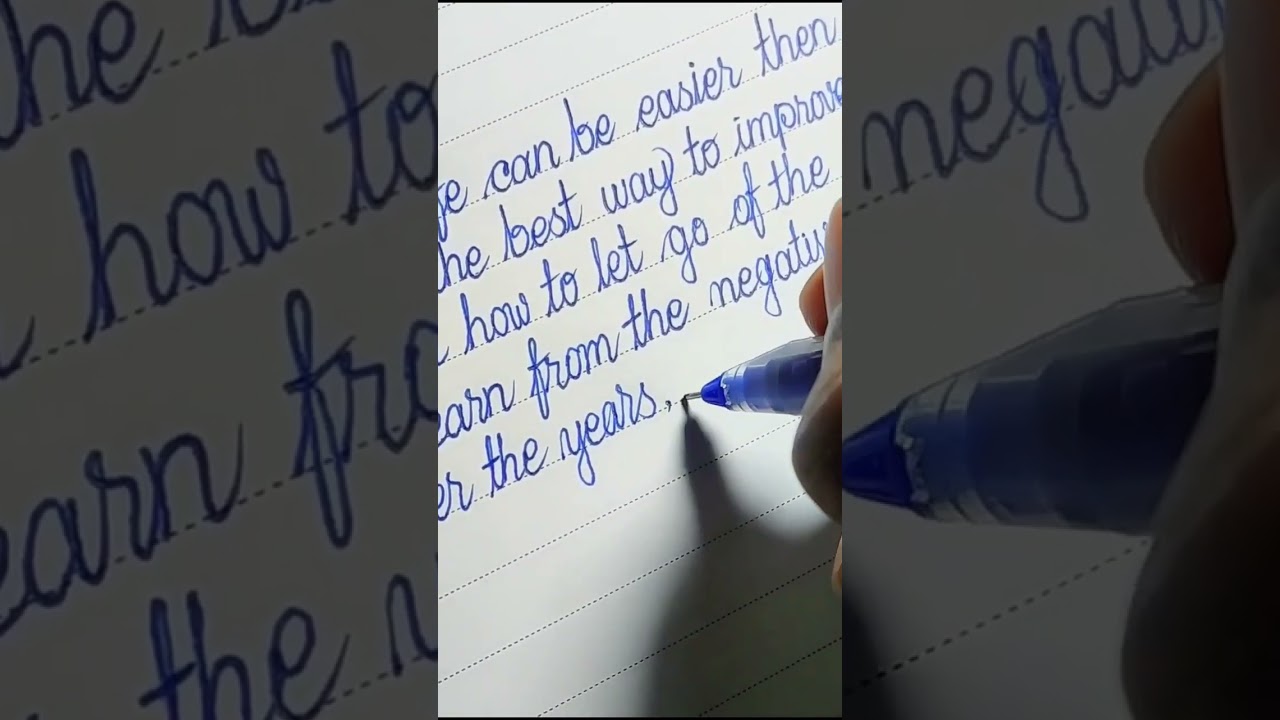 can be easier then
best way to improve
how to let go of the
from the negativ
the years.